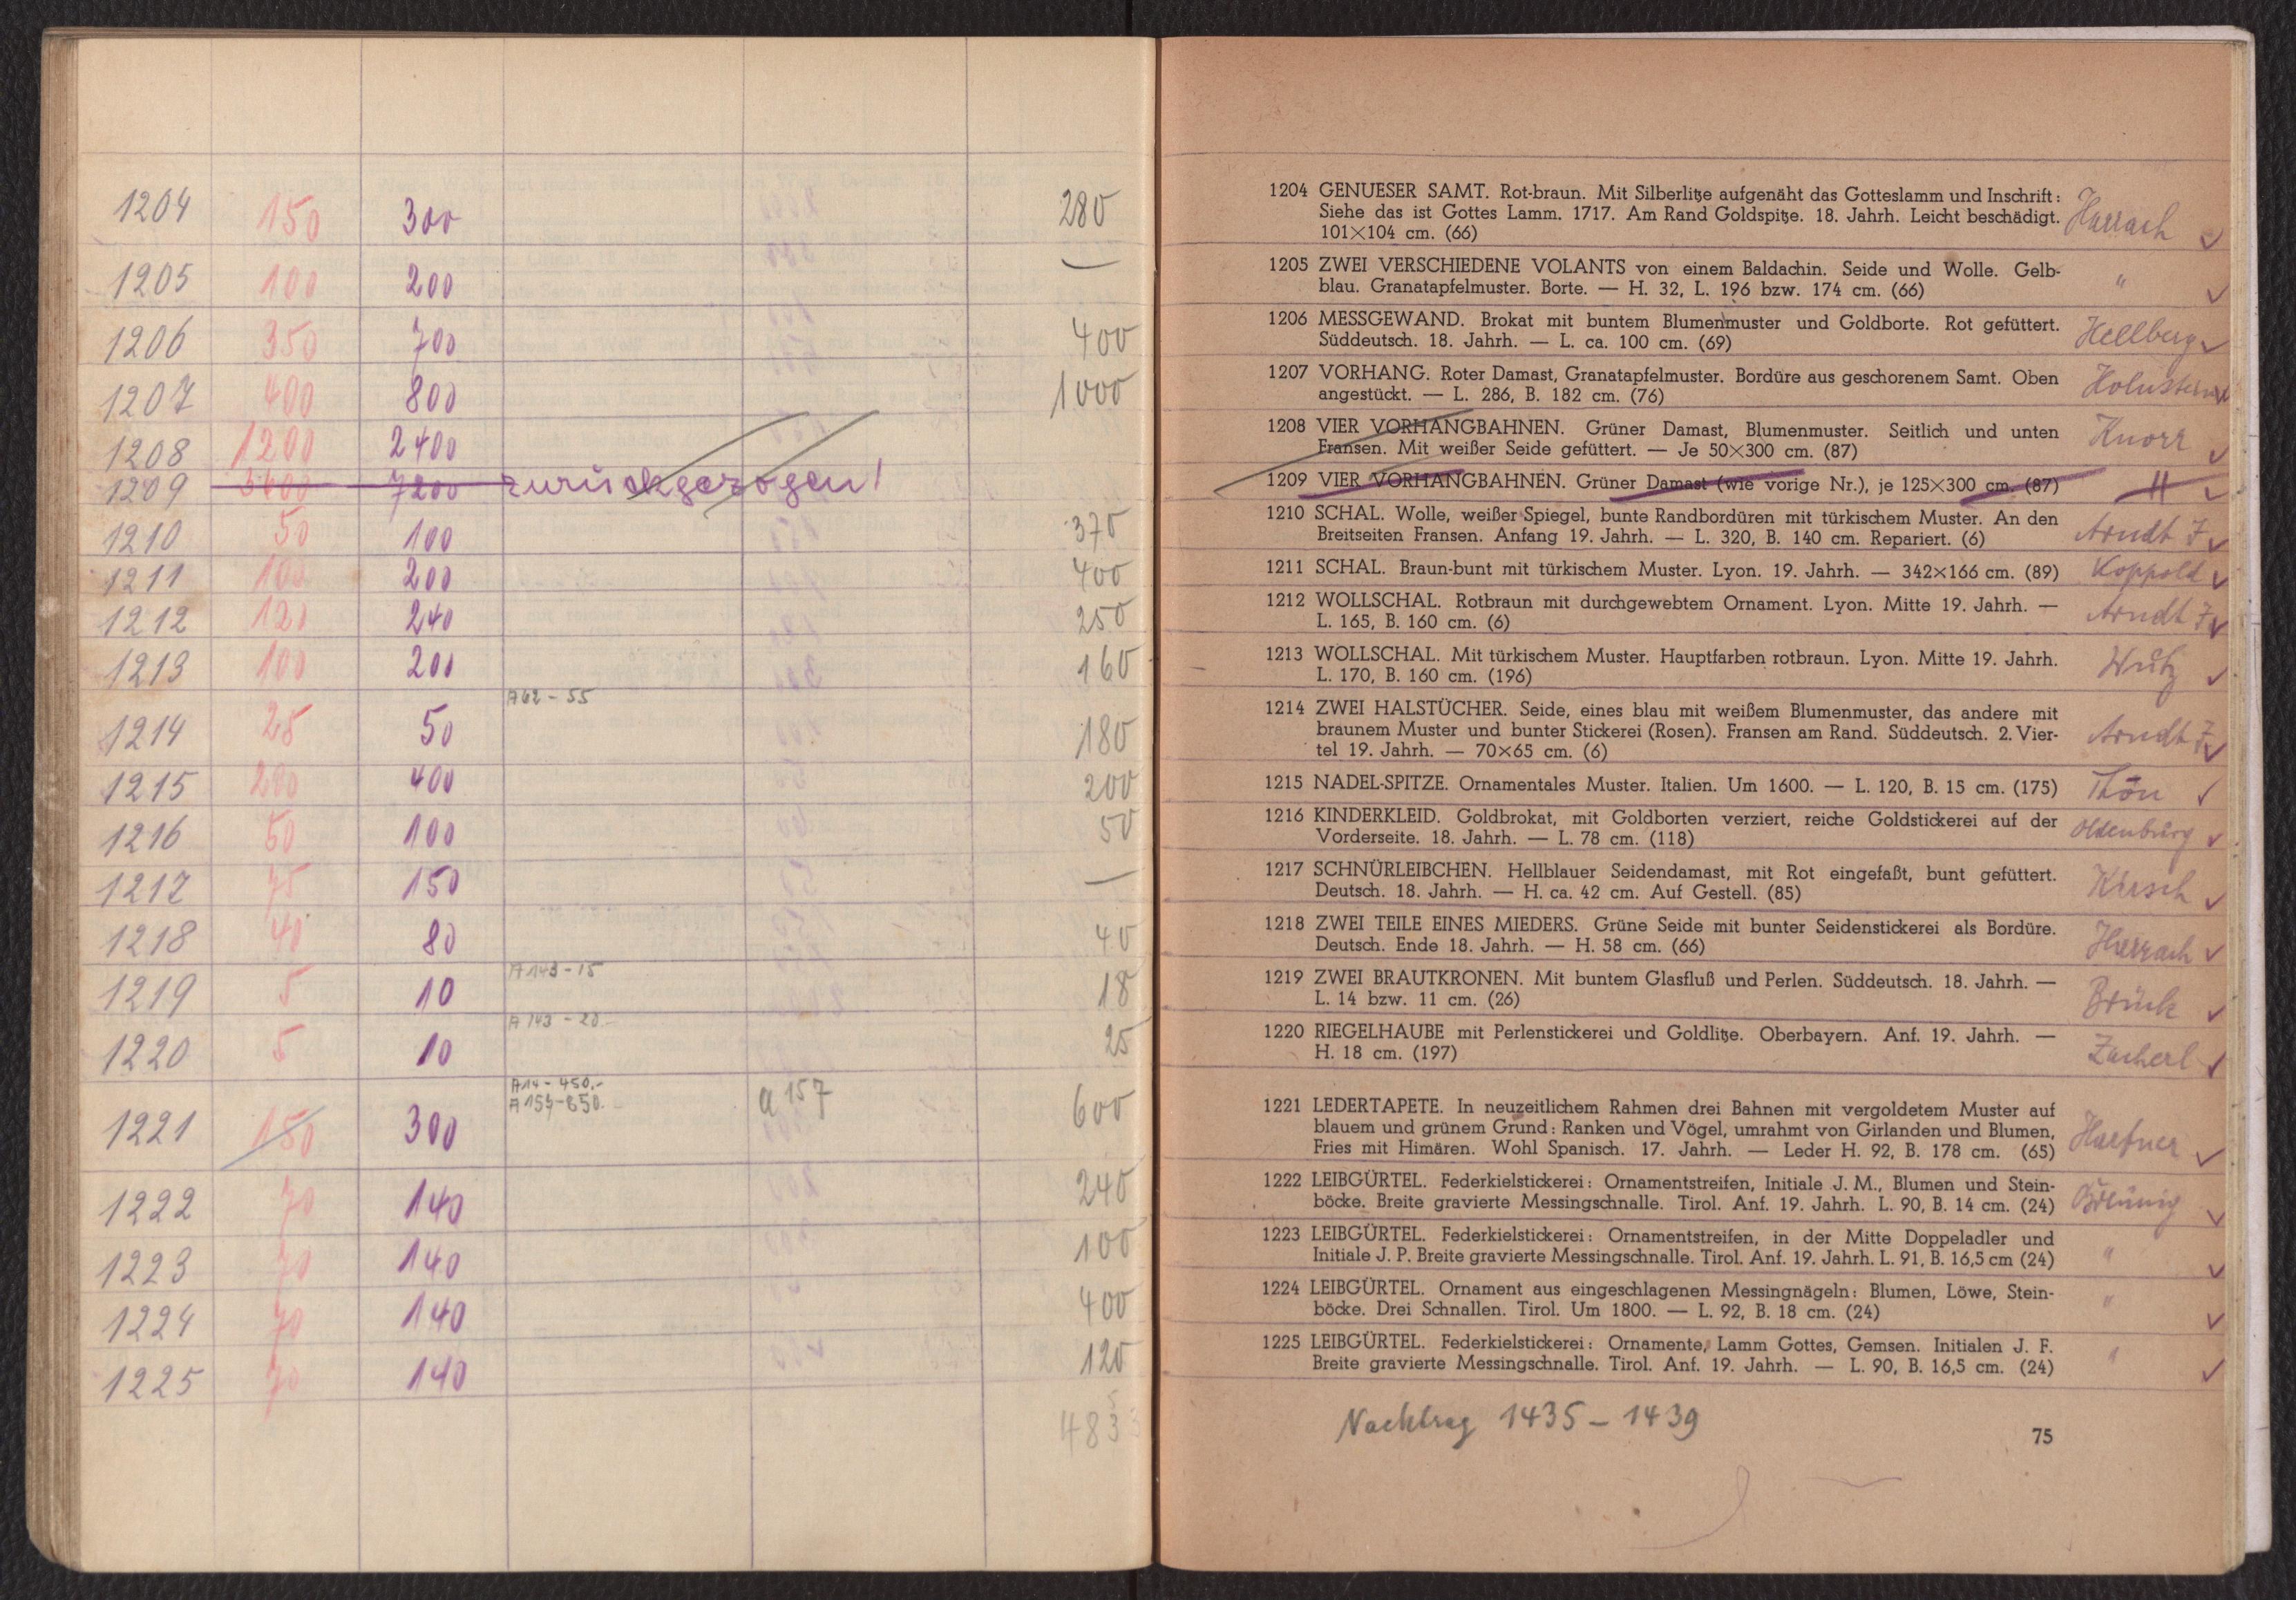 1204 150 300 280
1205 100 200 —
1206 350 700 400
1207 400 800 1000
1208 1200 2400
1209 3600 7200 zurückgezogen!
1210 50 100 370
1211 100 200 400
1212 120 240 250
1213 100 200 160
A62 - 55
1214 25 50 180
1215 200 400 200
1216 50 100 50
1217 75 150 —
1218 40 80 40
A143 - 15
1219 5 10 18
A143 - 20
1220 5 10 25
A14 - 450.-
1221 150 300 a 157 600
1222 70 140 240
1223 70 140 100
1224 70 140 400
1225 70 140 120
1204 GENUESER SAMT. Rot-braun. Mit Silberlitze aufgenäht das Gotteslamm und Inschrift:
Siehe das ist Gottes Lamm. 1717. Am Rand Goldspitze. 18. Jahrh. Leicht beschädigt.
101×104 cm. (66) Harrach ✓
1205 ZWEI VERSCHIEDENE VOLANTS von einem Baldachin. Seide und Wolle. Gelb-
blau. Granatapfelmuster. Borte. — H. 32, L. 196 bzw. 174 cm. (66) " ✓
1206 MESSGEWAND. Brokat mit buntem Blumenmuster und Goldborte. Rot gefüttert.
Süddeutsch. 18. Jahrh. — L. ca. 100 cm. (69) Hellberg ✓
1207 VORHANG. Roter Damast, Granatapfelmuster. Bordüre aus geschorenem Samt. Oben
angestückt. — L. 286, B. 182 cm. (76)
1208 VIER VORHANGBAHNEN. Grüner Damast, Blumenmuster. Seitlich und unten
Fransen. Mit weißer Seide gefüttert. — Je 50×300 cm. (87) Knorr ✓
1209 VIER VORHANGBAHNEN. Grüner Damast (wie vorige Nr.), je 125×300 cm. (87) " ✓
1210 SCHAL. Wolle, weißer Spiegel, bunte Randbordüren mit türkischem Muster. An den
Breitseiten Fransen. Anfang 19. Jahrh. — L. 320, B. 140 cm. Repariert. (6) Arndt J ✓
1211 SCHAL. Braun-bunt mit türkischem Muster. Lyon. 19. Jahrh. — 342×166 cm. (89) Koppold ✓
1212 WOLLSCHAL. Rotbraun mit durchgewebtem Ornament. Lyon. Mitte 19. Jahrh. —
L. 165, B. 160 cm. (6) Arndt J ✓
1213 WOLLSCHAL. Mit türkischem Muster. Hauptfarben rotbraun. Lyon. Mitte 19. Jahrh.
L. 170, B. 160 cm. (196) ✓
1214 ZWEI HALSTÜCHER. Seide, eines blau mit weißem Blumenmuster, das andere mit
braunem Muster und bunter Stickerei (Rosen). Fransen am Rand. Süddeutsch. 2. Vier-
tel 19. Jahrh. — 70×65 cm. (6) Arndt J ✓
1215 NADEL-SPITZE. Ornamentales Muster. Italien. Um 1600. — L. 120, B. 15 cm. (175) Thön ✓
1216 KINDERKLEID. Goldbrokat, mit Goldborten verziert, reiche Goldstickerei auf der
Vorderseite. 18. Jahrh. — L. 78 cm. (118) Oldenburg ✓
1217 SCHNÜRLEIBCHEN. Hellblauer Seidendamast, mit Rot eingefaßt, bunt gefüttert.
Deutsch. 18. Jahrh. — H. ca. 42 cm. Auf Gestell. (85) Kirsch ✓
1218 ZWEI TEILE EINES MIEDERS. Grüne Seide mit bunter Seidenstickerei als Bordüre.
Deutsch. Ende 18. Jahrh. — H. 58 cm. (66) Harrach ✓
1219 ZWEI BRAUTKRONEN. Mit buntem Glasfluß und Perlen. Süddeutsch. 18. Jahrh. —
L. 14 bzw. 11 cm. (26) Brück ✓
1220 RIEGELHAUBE mit Perlenstickerei und Goldlitze. Oberbayern. Anf. 19. Jahrh. —
H. 18 cm. (197) Zacherl ✓
1221 LEDERTAPETE. In neuzeitlichem Rahmen drei Bahnen mit vergoldetem Muster auf
blauem und grünem Grund: Ranken und Vögel, umrahmt von Girlanden und Blumen,
Fries mit Himären. Wohl Spanisch. 17. Jahrh. — Leder H. 92, B. 178 cm. (65) Harfner ✓
1222 LEIBGÜRTEL. Federkielstickerei: Ornamentstreifen, Initiale J. M., Blumen und Stein-
böcke. Breite gravierte Messingschnalle. Tirol. Anf. 19. Jahrh. L. 90, B. 14 cm. (24) ✓
1223 LEIBGÜRTEL. Federkielstickerei: Ornamentstreifen, in der Mitte Doppeladler und
Initiale J. P. Breite gravierte Messingschnalle. Tirol. Anf. 19. Jahrh. L. 91, B. 16,5 cm (24) " ✓
1224 LEIBGÜRTEL. Ornament aus eingeschlagenen Messingnägeln: Blumen, Löwe, Stein-
böcke. Drei Schnallen. Tirol. Um 1800. — L. 92, B. 18 cm. (24) " ✓
1225 LEIBGÜRTEL. Federkielstickerei: Ornamente, Lamm Gottes, Gemsen. Initialen J. F.
Breite gravierte Messingschnalle. Tirol. Anf. 19. Jahrh. — L. 90, B. 16,5 cm. (24) " ✓
Nachtrag 1435 - 1439
75